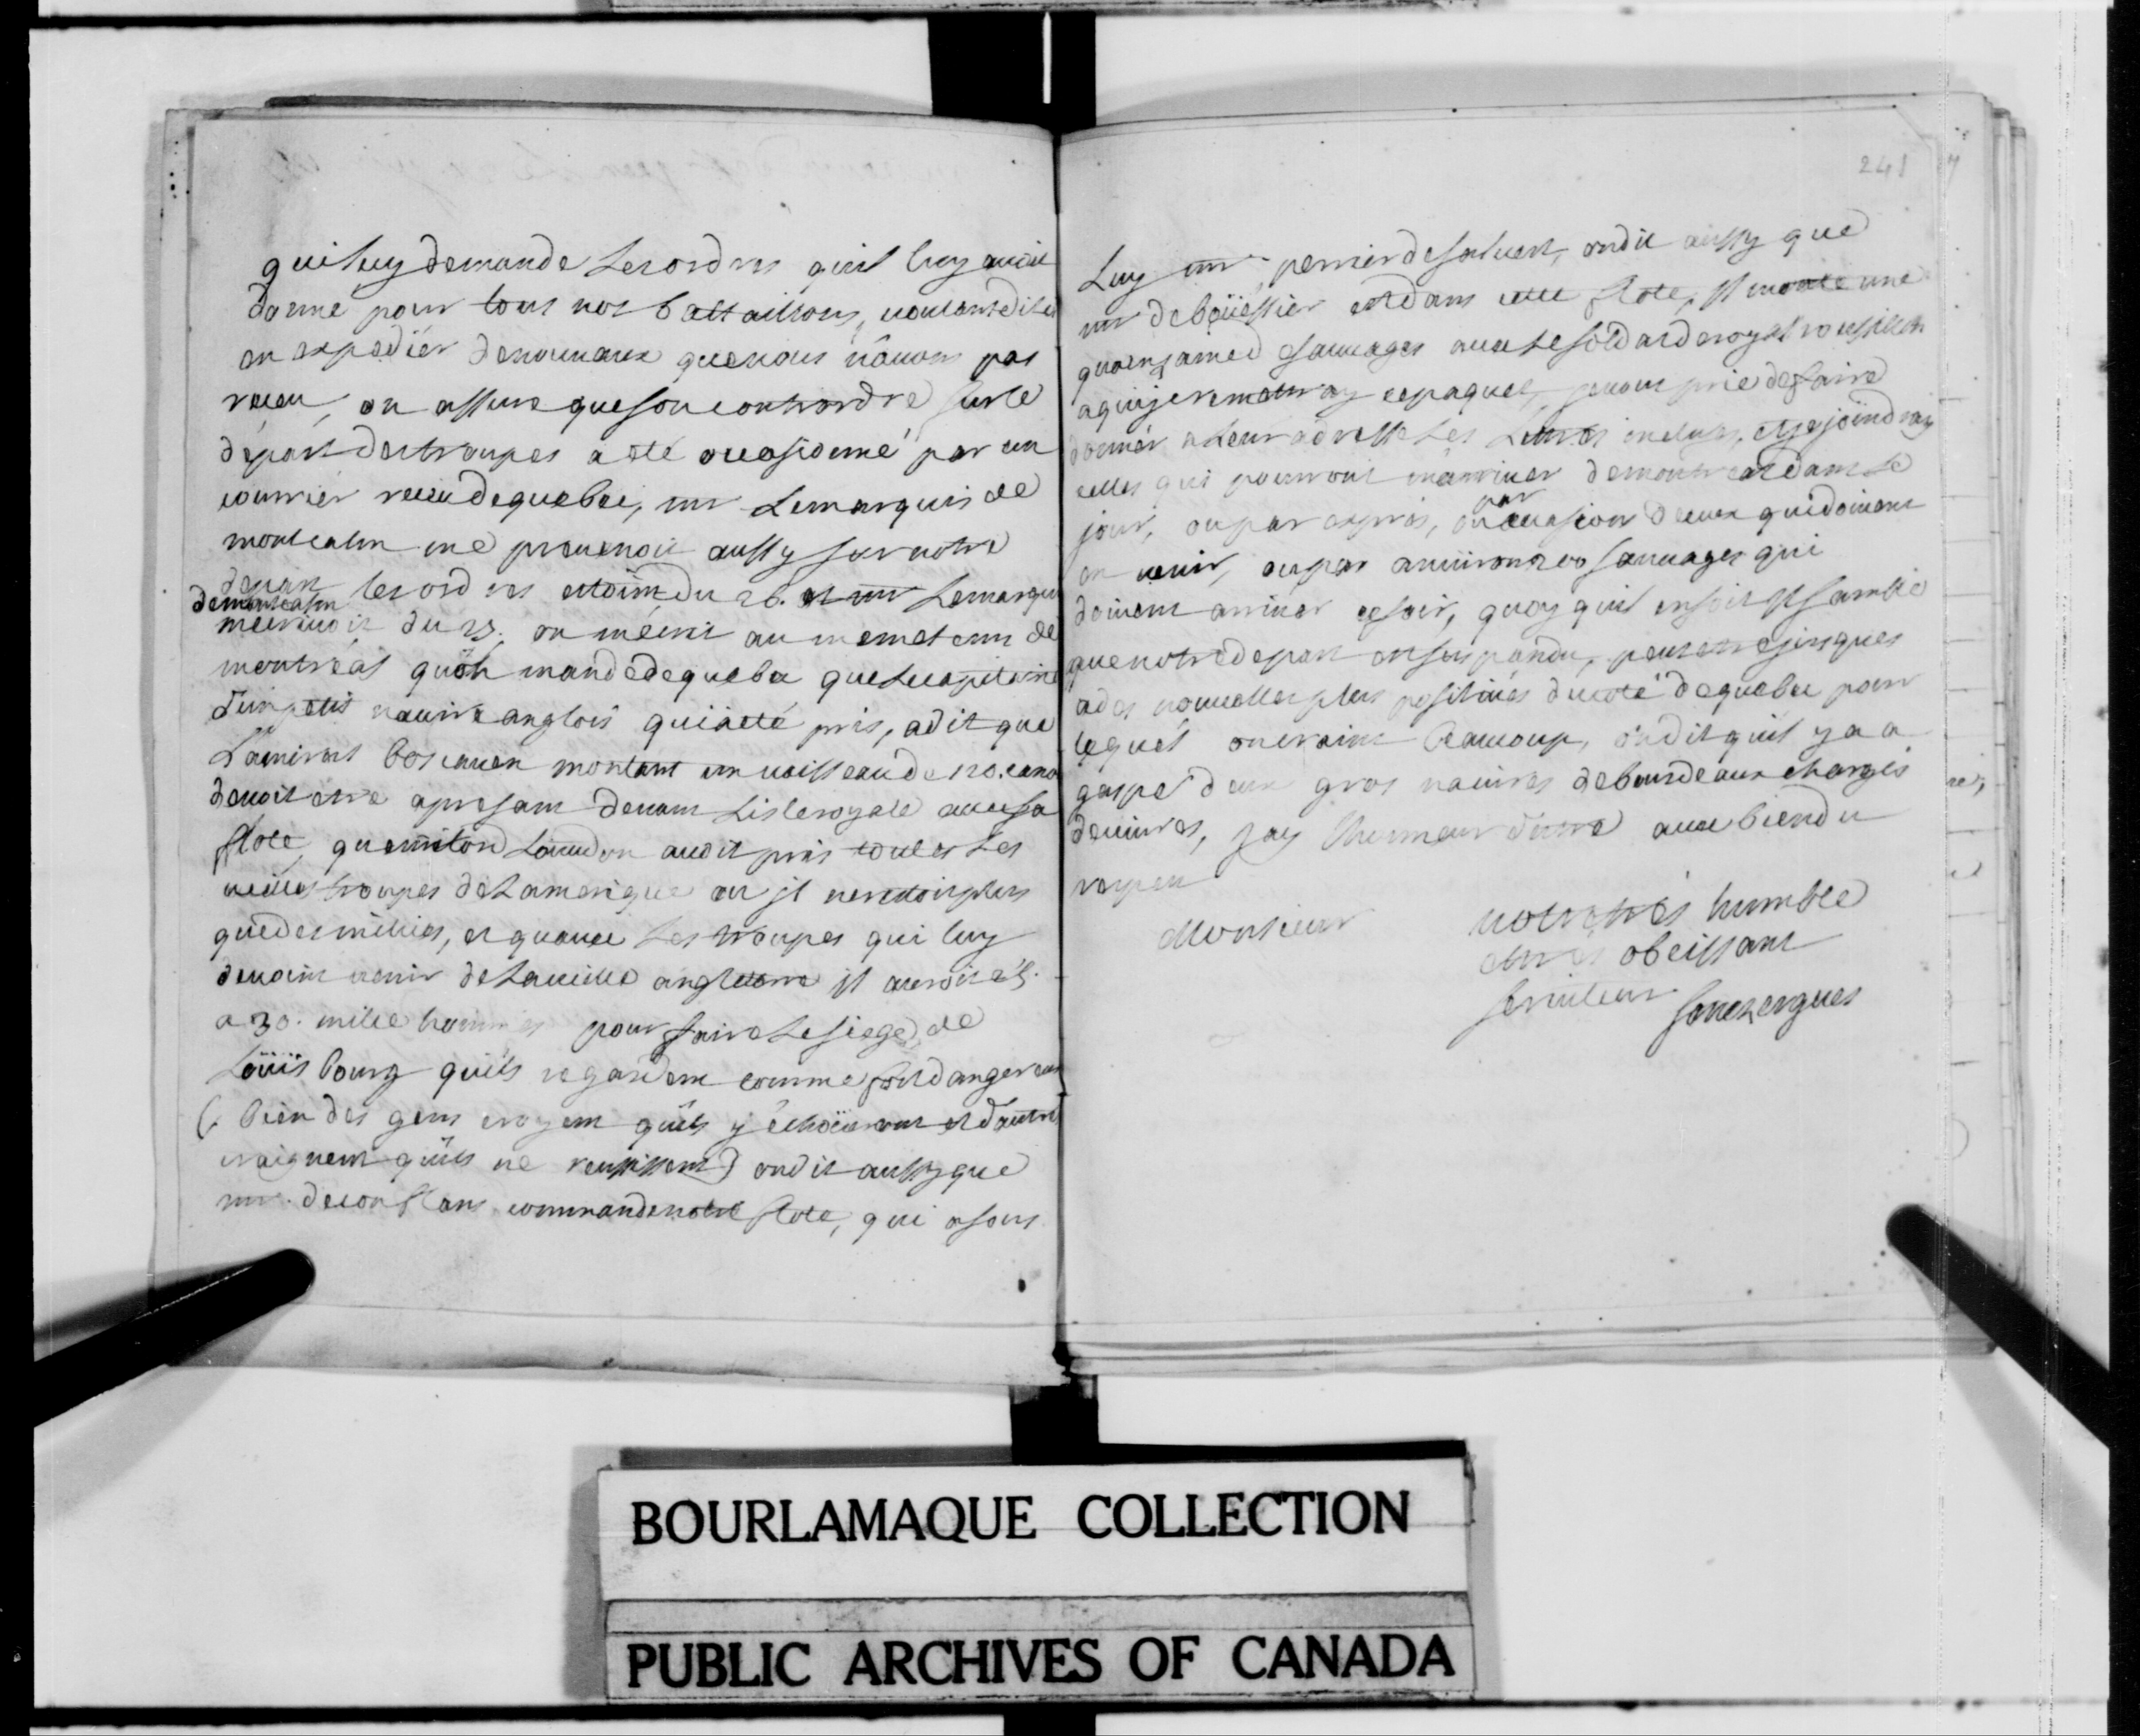 qui luy demande les ordres quil luy avoit
donné pour tous nos battaillons, voulant dit il
en expedier denouveaux que nous n'avons pas
receu, on assure queson contrordre surle
départ destroupes a eté occasionné par un
courrier receu dequebec, mr Lemarquis de
montcalm me prevenoit aussy sur notre
depart les ordres etoint du 26. et mr Lemarquis
demontcalm
mecrivoit du 25. on mécrit au memetems de
montréal qu'on mandedequebec que lecapitaine
d'un petit navire anglois qui a eté pris, a dit que
L'amiral boscawen montant un vaisseau de 120. canons
devoit etre apresant devant Lisleroyale avec sa
flote, que milord Loudon avoit pris toutes les
vieilles troupes de Lamerique ou jl ne restoit plus
que des milices, et quavec les troupes qui luy
devoint venir de La vieille angleterre jl auroit 25.
a 30. mille hommes pour faire le siege de
Loüisbourg quils regardent comme fort dangereux
( bien des gens croyent quils y échoüeront et d'autres
craignent quils ne reussissent) on dit aussy que
mr. deconflans commande notre flote, qui a sous
241
Luy mr perrier de salvert, on dit aussy que
mr deboüessier est dans cette flote, jl monte une
sauvages avec le soldat de royal roussillon
a qui je remettray ce paquet, je vous prie de faire
donner a leur adresse les Lettres incluses, et je joindray
celles qui pourront m'arriver de montreal dans le
jour, ou par expres, ou par occasion deceux quidoivent
en venir, ou par environ 200 sauvages qui
doivent arriver ce soir, quoy quil ensoit jl samble
que notre depart est suspandu, peut etre jusques
a des nouvelles plus positives ducoté dequebec pour
lequel on craint beaucoup, on dit quil y a a
gaspé deux gros navires debourdeaux chargés
devivres, jay Lhonneur detre avec bien du
respeu
Monsieur
votre trés humble
et tres obeissant
serviteur
senezergues
BOURLAMAQUE COLLECTION
PUBLIC ARCHIVES OF CANADA